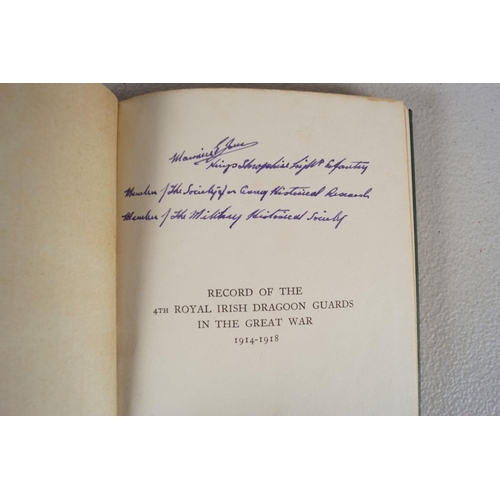 Maurice E Jones
Kings Shropshire Light Infantry
Member of The Society for Army Historical Research
Member of The Military Historical Society
RECORD OF THE
4TH ROYAL IRISH DRAGOON GUARDS
IN THE GREAT WAR
1914-1918